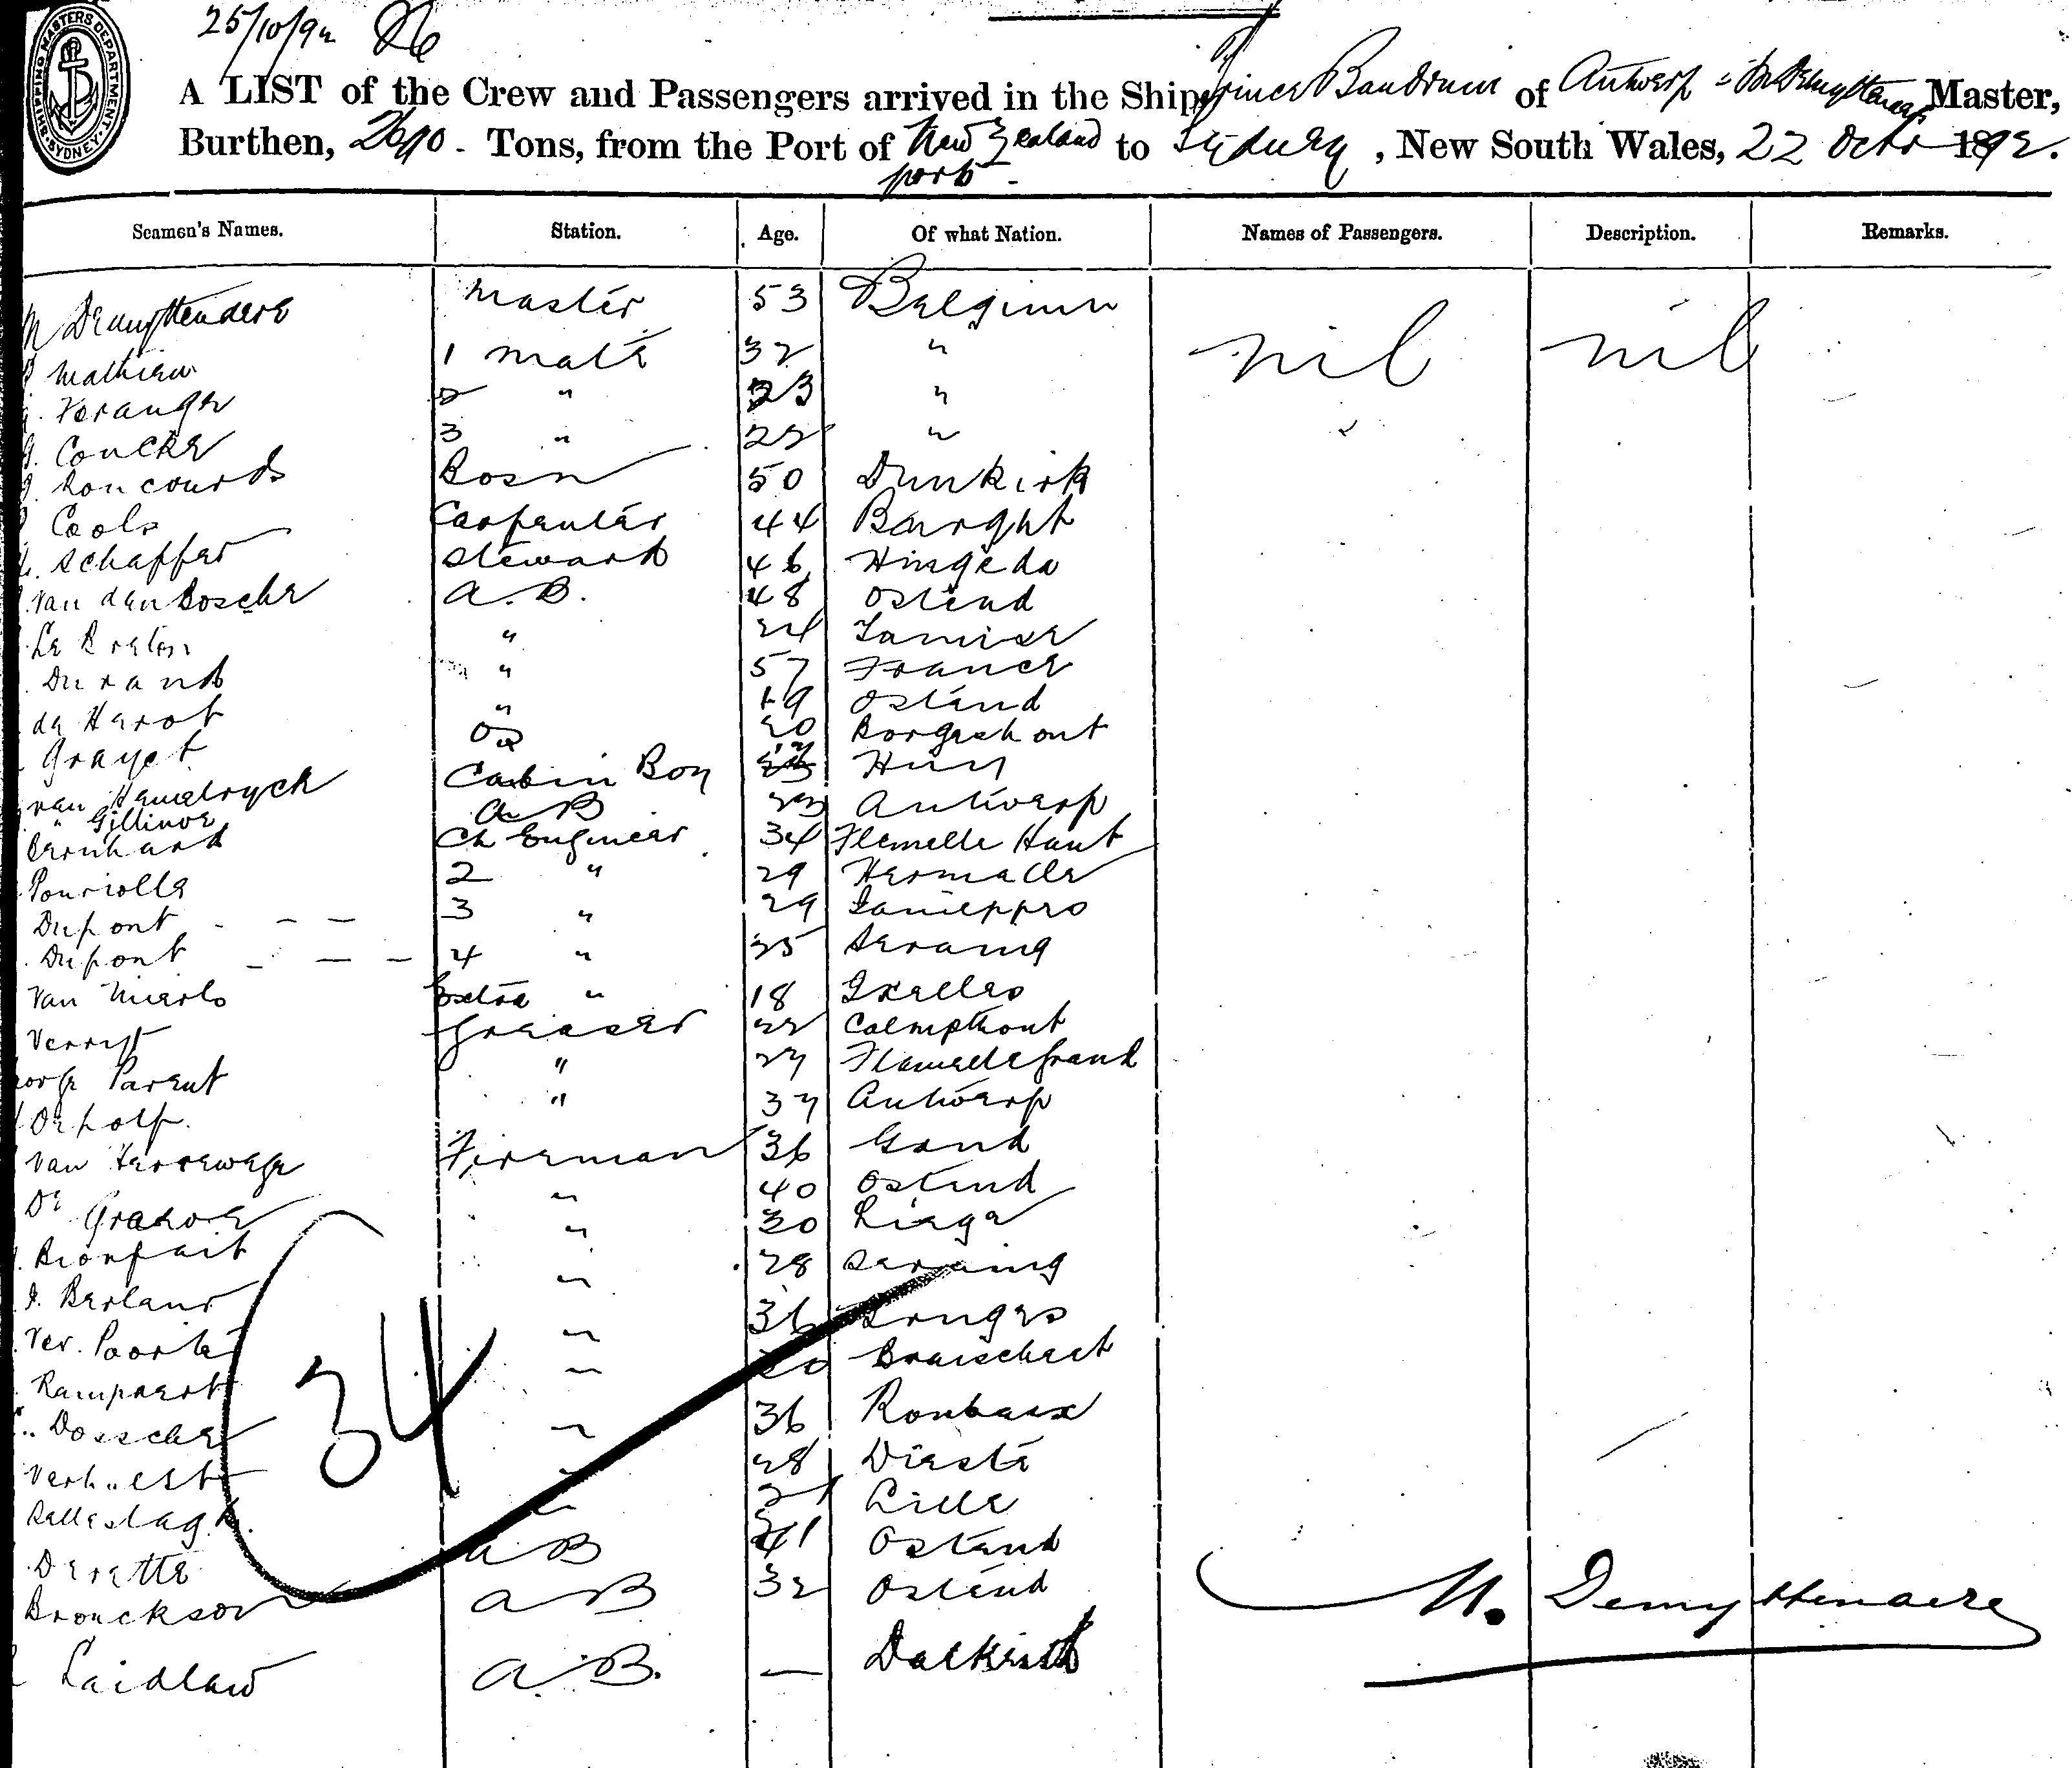 SHIPPING MASTERS DEPARTMENT. SYDNEY
25/10/92 86
A LIST of the Crew and Passengers arrived in the Ship Prince Baudouin of Antwerp Demyttenaere Master,
Burthen, 2690 Tons, from the Port of New Zealand to Sydney, New South Wales, 22 Octr 1892.
port
Seamen's Names. Station. Age. Of what Nation. Names of Passengers. Description. Remarks.
M Demyttenaere Master 53 Belgium nil nil
Mathieu 1 Mate 32 "
Veranger 2 " 23 "
Coucke 3 " 22 "
Roncourds Bosn 50 Dunkirk
Cools Carpenter 44 Burght
Schaffer Steward 46 Hingeda
Van den Bosche A.B. 48 Ostend
Le Breton " 24 Tamise
Durand " 57 France
de Harot " 19 Ostend
Grayet OS 20 Borgerhout
van Hemelryck Cabin Boy Huy
" Gillinor A B 23 Antwerp
Bernhard Ch Engineer 34 Flemelle Haut
Pouriolle 2 " 29 Hermalle
Dupont 3 " 29 Jemeppes
Dupont 4 " 25 Seraing
Van Mierlo Extra " 18 Ixelles
Verryt Greaser 22 Calmpthout
George Parent " 27 Flemelle grand
" 37 Antwerp
Van Herrewege Fireman 36 Gand
De Graeve " 40 Ostend
Bionfait " 30 Liege
J. Berlans " 28 Seraing
Ver. Poorte " 36 Tongres
Rampaert " 20 Braischaet
Dossche " 36 Roubaix
Verhulst " 28 Dieste
Rallestagh " 21 Lille
Derette A B 41 Ostend
Bronckson A B 32 Ostend
Laidlaw A.B. — Dalkeith
34
M. Demyttenaere